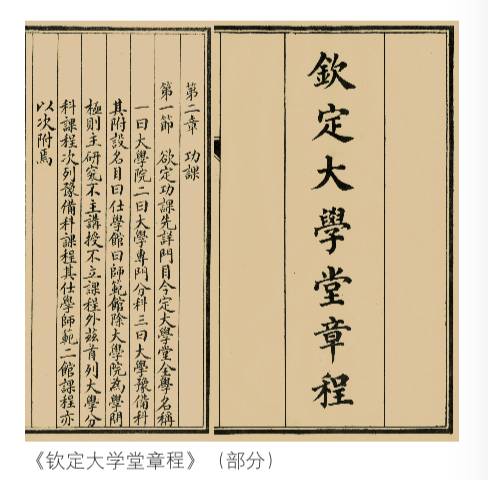 欽定大學堂章程
第二章　功課
第一節　欲定功課先詳門目今定大學堂全學名稱
一曰大學院二曰大學專門分科三曰大學豫備科
其附設名目曰仕學館曰師範館除大學院為學問
極則主研究不主講授不立課程外茲首列大學分
科課程次列豫備科課程其仕學師範二館課程亦
以次附焉
《钦定大学堂章程》（部分）